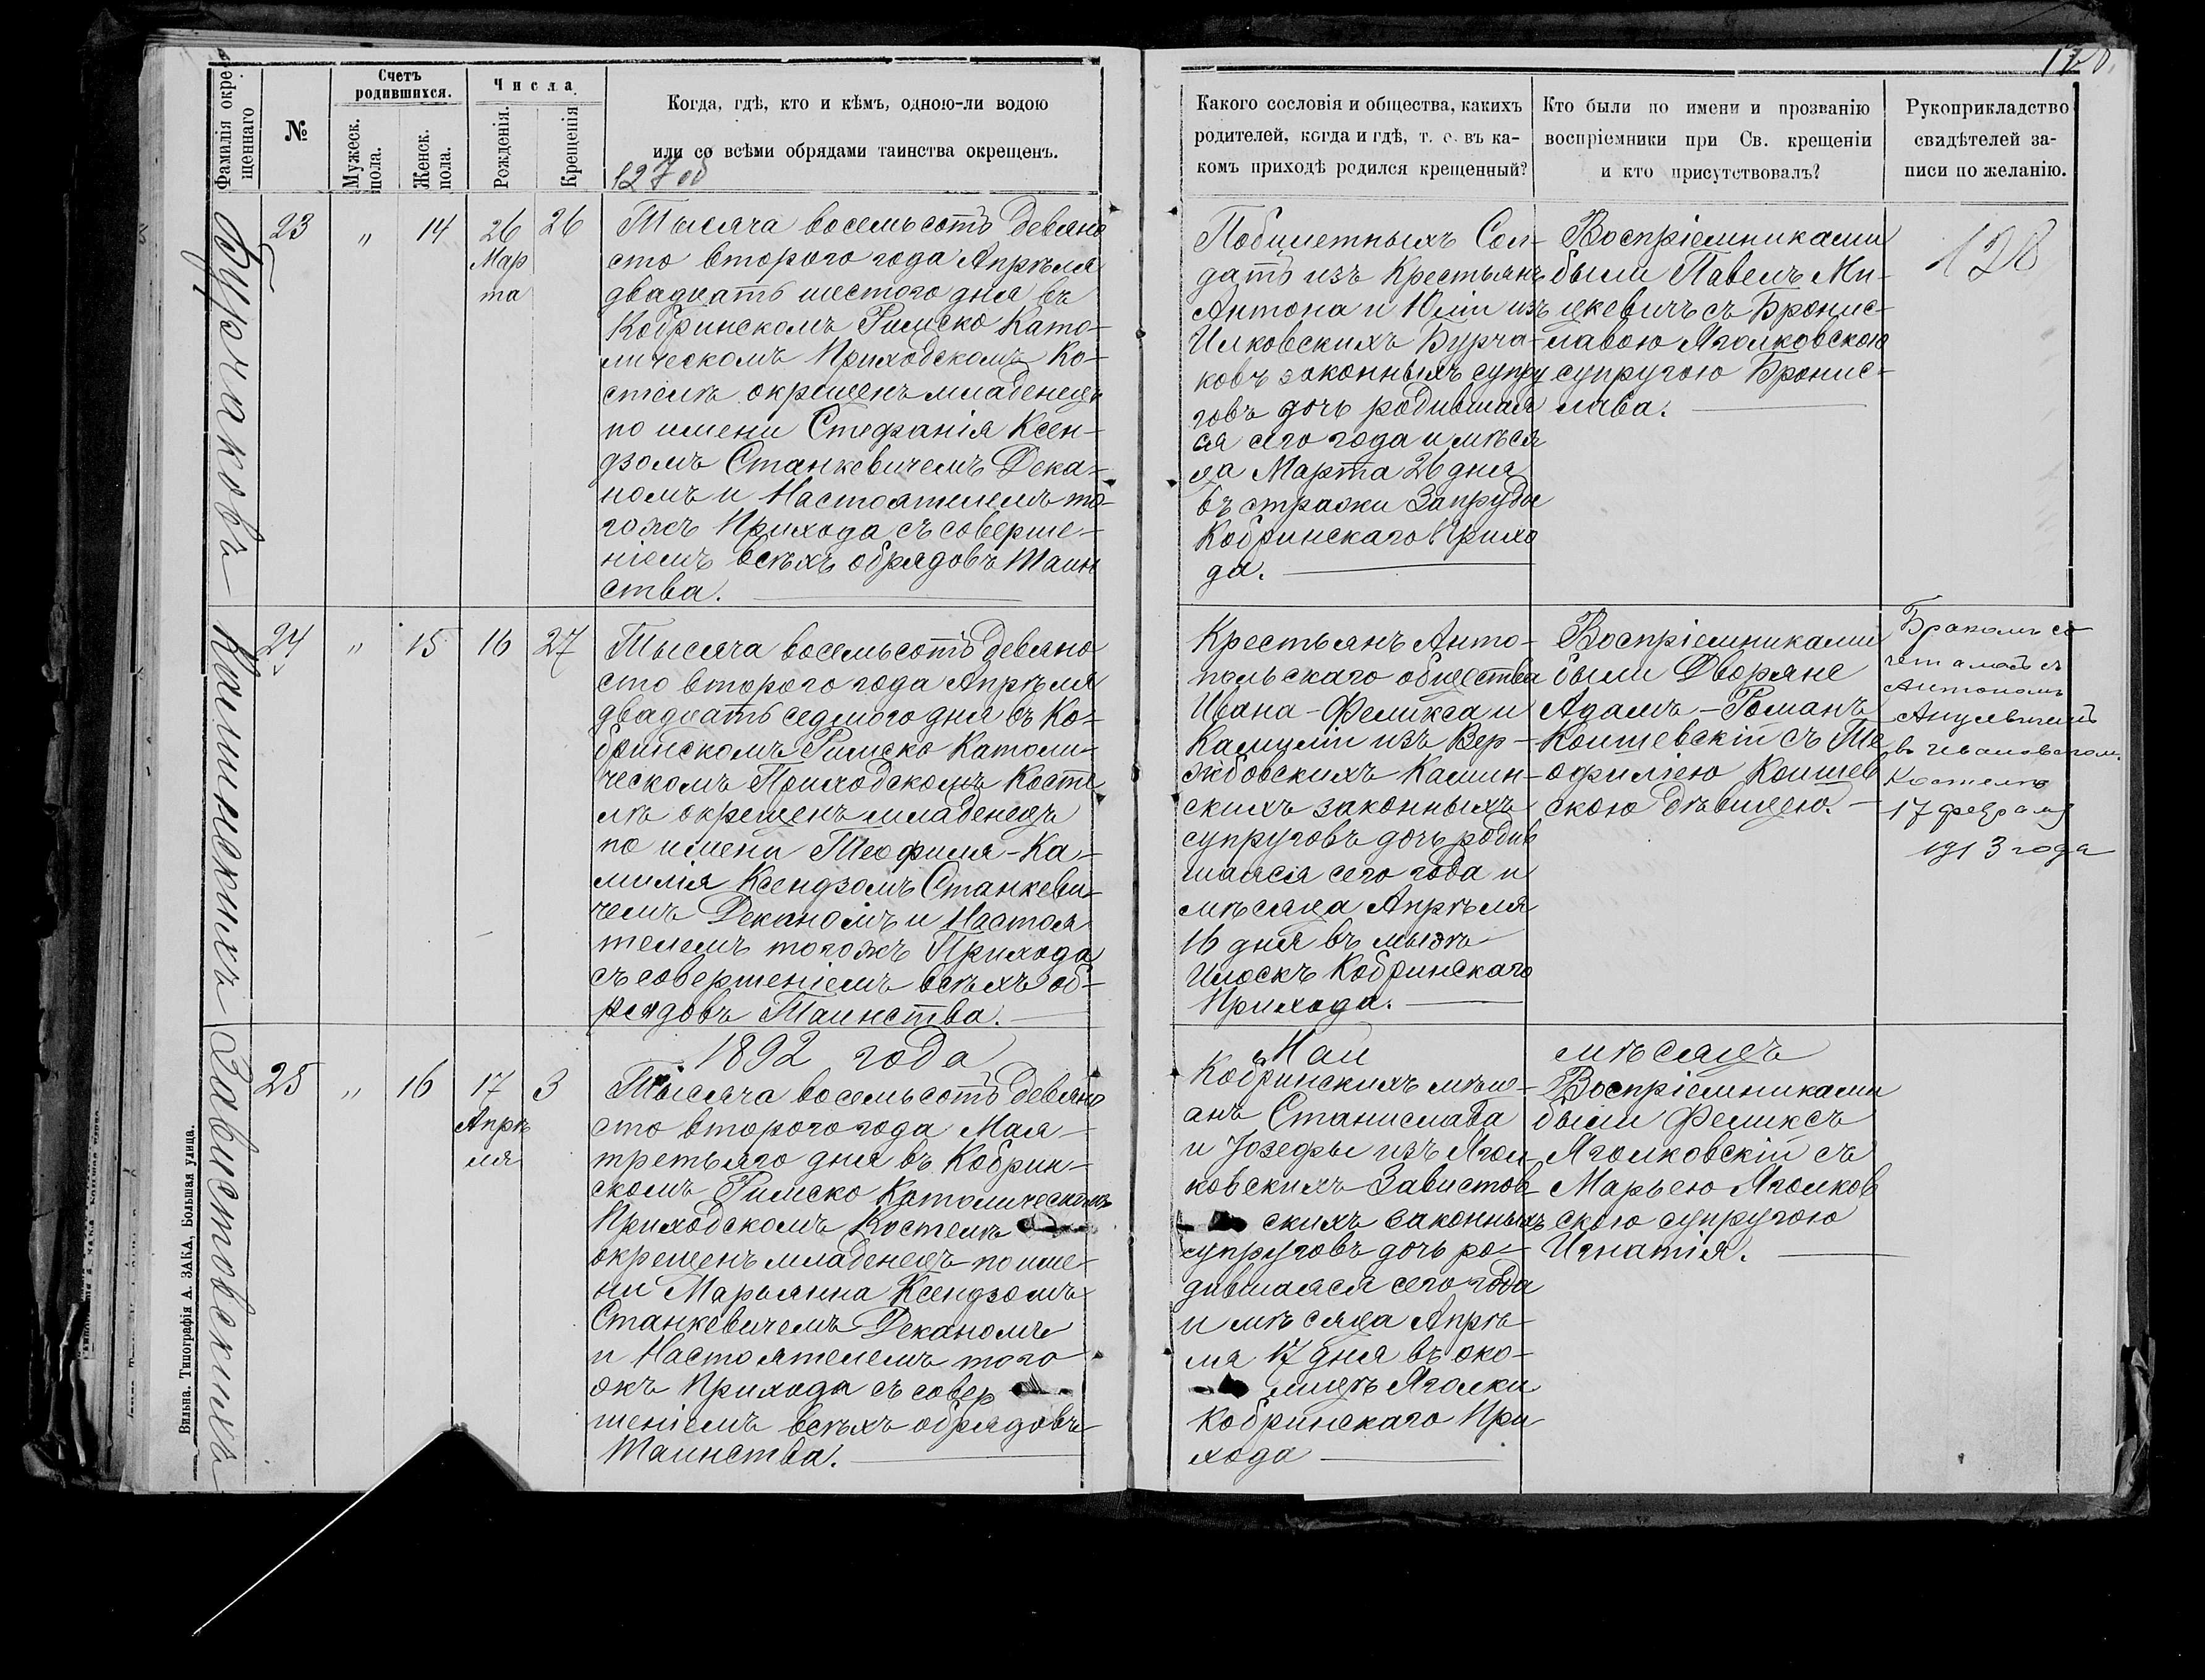 Фамилія окре-
щеннаго
№
Счетъ
родившихся.
Мужеск.
пола.
Женск.
пола.
Числа
Рожденія.
Крещенія
Когда, гдѣ, кто и кѣмъ, одною-ли водою
или со всѣми обрядами таинства окрещенъ.
127 об
Бурчакова
23
"
14
26
Мар
та
26
Тысяча восемьсотъ девяно
сто второго года Апрѣля
двадцать шестого дня въ
Кобринскомъ Римско Като-
лическомъ Приходскомъ Ко-
стелѣ окрещенъ младенецъ
по имени Стефанія Ксен-
дзомъ Станкевичемъ Дека-
номъ и Настоятелемъ то-
гожъ Прихода съ соверше-
ніемъ всѣхъ обрядовъ Таин
ства.
Каминскихъ
24
"
15
16
27
Тысяча восемьсотъ девяно
сто второго года Апрѣля
двадцать седмого дня въ Ко-
бринскомъ Римско Католи-
ческомъ Приходскомъ Косте
лѣ окрещенъ младенецъ
по имени Теофиля-Ка-
милія Ксендзомъ Станкеви-
чемъ Деканомъ и Настоя
телемъ тогожъ Прихода
съ совершеніемъ всѣхъ об-
рядовъ Таинства.
1892 года
Завистовскихъ
25
"
16
17
Апрѣ
ля
3
Тысяча восемьсотъ девяно
сто второго года Мая
третьяго дня въ Кобрин-
скомъ Римско Католическомъ
Приходскомъ Костелѣ
окрещенъ младенецъ по име-
ни Марьянна Ксендзомъ
Станкевичемъ Деканомъ
и Настоятелемъ того
жъ Прихода съ совер
шеніемъ всѣхъ обрядовъ
Таинства.
Вильна. Типографія А. ЗАКА, Большая улица.
128
Какого сословія и общества, какихъ
родителей, когда и гдѣ, т. е. въ ка-
комъ приходѣ родился крещенный?
Кто были по имени и прозванію
воспріемники при Св. крещеніи
и кто присутствовалъ?
Рукоприкладство
свидѣтелей за-
писи по желанію.
Побилетныхъ Сол-
датъ изъ Крестьянъ
Антона и Юліи изъ
Илковскихъ Бурча-
ковъ законныхъ супру
говъ дочь родившая
ся сего года и мѣся
ца Марта 26 дня
въ стражи Запруды
Кобринскаго Прихо
да.
Воспріемниками
были Павелъ Ми-
цкевичъ съ Бронис-
лавою Яголковскою
супругою Бронис-
лава.
128
Крестьянъ Анто-
польскаго общества
Ивана-Феликса и
Камиліи изъ Вер-
жбовскихъ Камин-
скихъ законныхъ
супруговъ дочь родив
шаяся сего года и
мѣсяца Апрѣля
16 дня въ
Илоскъ Кобринскаго
Прихода.
Воспріемниками
были Дворяне
Адамъ-Романъ
Коишевскій съ Те
офилією Коишев
скою дѣвицею.
Бракомъ со
четалась съ
Антономъ
въ Ивановском.
Костелѣ
17 февраля
1913 года
Маи
мѣсяцъ
Кобринскихъ мѣщ-
анъ Станислава
и Іозефы изъ Ягол-
ковскихъ Завистов
скихъ законныхъ
супруговъ дочь ро-
дившаяся сего года
и мѣсяца Апрѣ-
ля 17 дня въ око-
лицѣ Яголки
Кобринскаго При
хода
Воспріемниками
были Феликсъ
Яголковскій съ
Марьею Яголков
скою супругою
Игнатія.